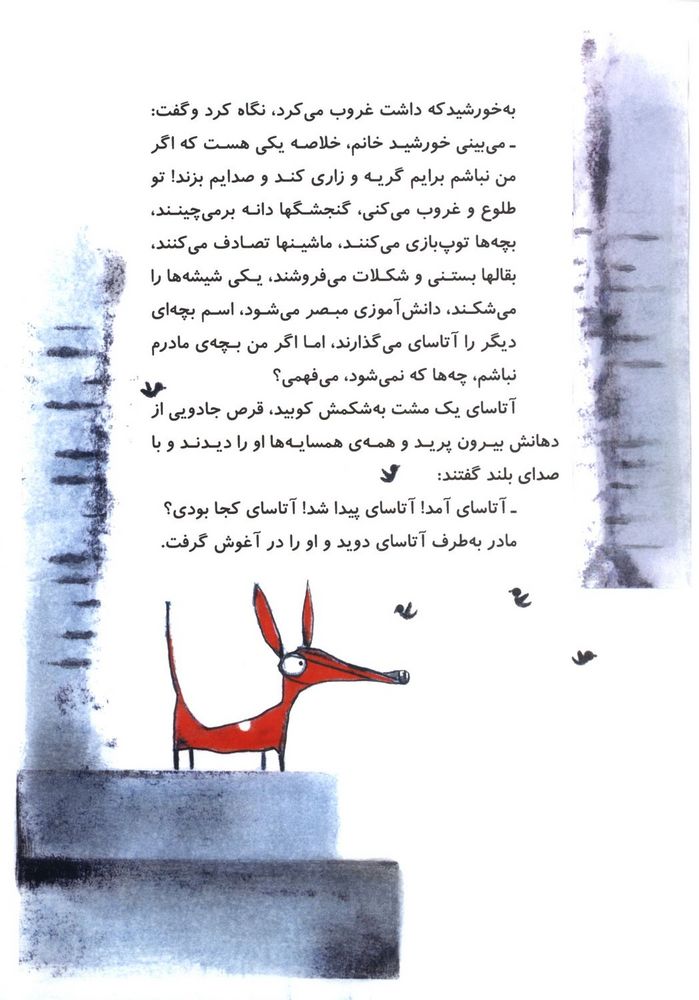 به‌خورشیدکه داشت غروب می‌کرد، نگاه کرد وگفت:
ـ می‌بینی خورشید خانم، خلاصه یکی هست که اگر
من نباشم برایم گریه و زاری کند و صدایم بزند! تو
طلوع و غروب می‌کنی، گنجشگها دانه برمی‌چینند،
بچه‌ها توپ‌بازی می‌کنند، ماشینها تصادف می‌کنند،
بقالها بستنی و شکلات می‌فروشند، یکی شیشه‌ها را
می‌شکند، دانش‌آموزی مبصر می‌شود، اسم بچه‌ای
دیگر را آتاسای می‌گذارند، اما اگر من بچه‌ی مادرم
نباشم، چه‌ها که نمی‌شود، می‌فهمی؟
آتاسای یک مشت به‌شکمش کوبید، قرص جادویی از
دهانش بیرون پرید و همه‌ی همسایه‌ها او را دیدند و با
صدای بلند گفتند:
ـ آتاسای آمد! آتاسای پیدا شد! آتاسای کجا بودی؟
مادر به‌طرف آتاسای دوید و او را در آغوش گرفت.